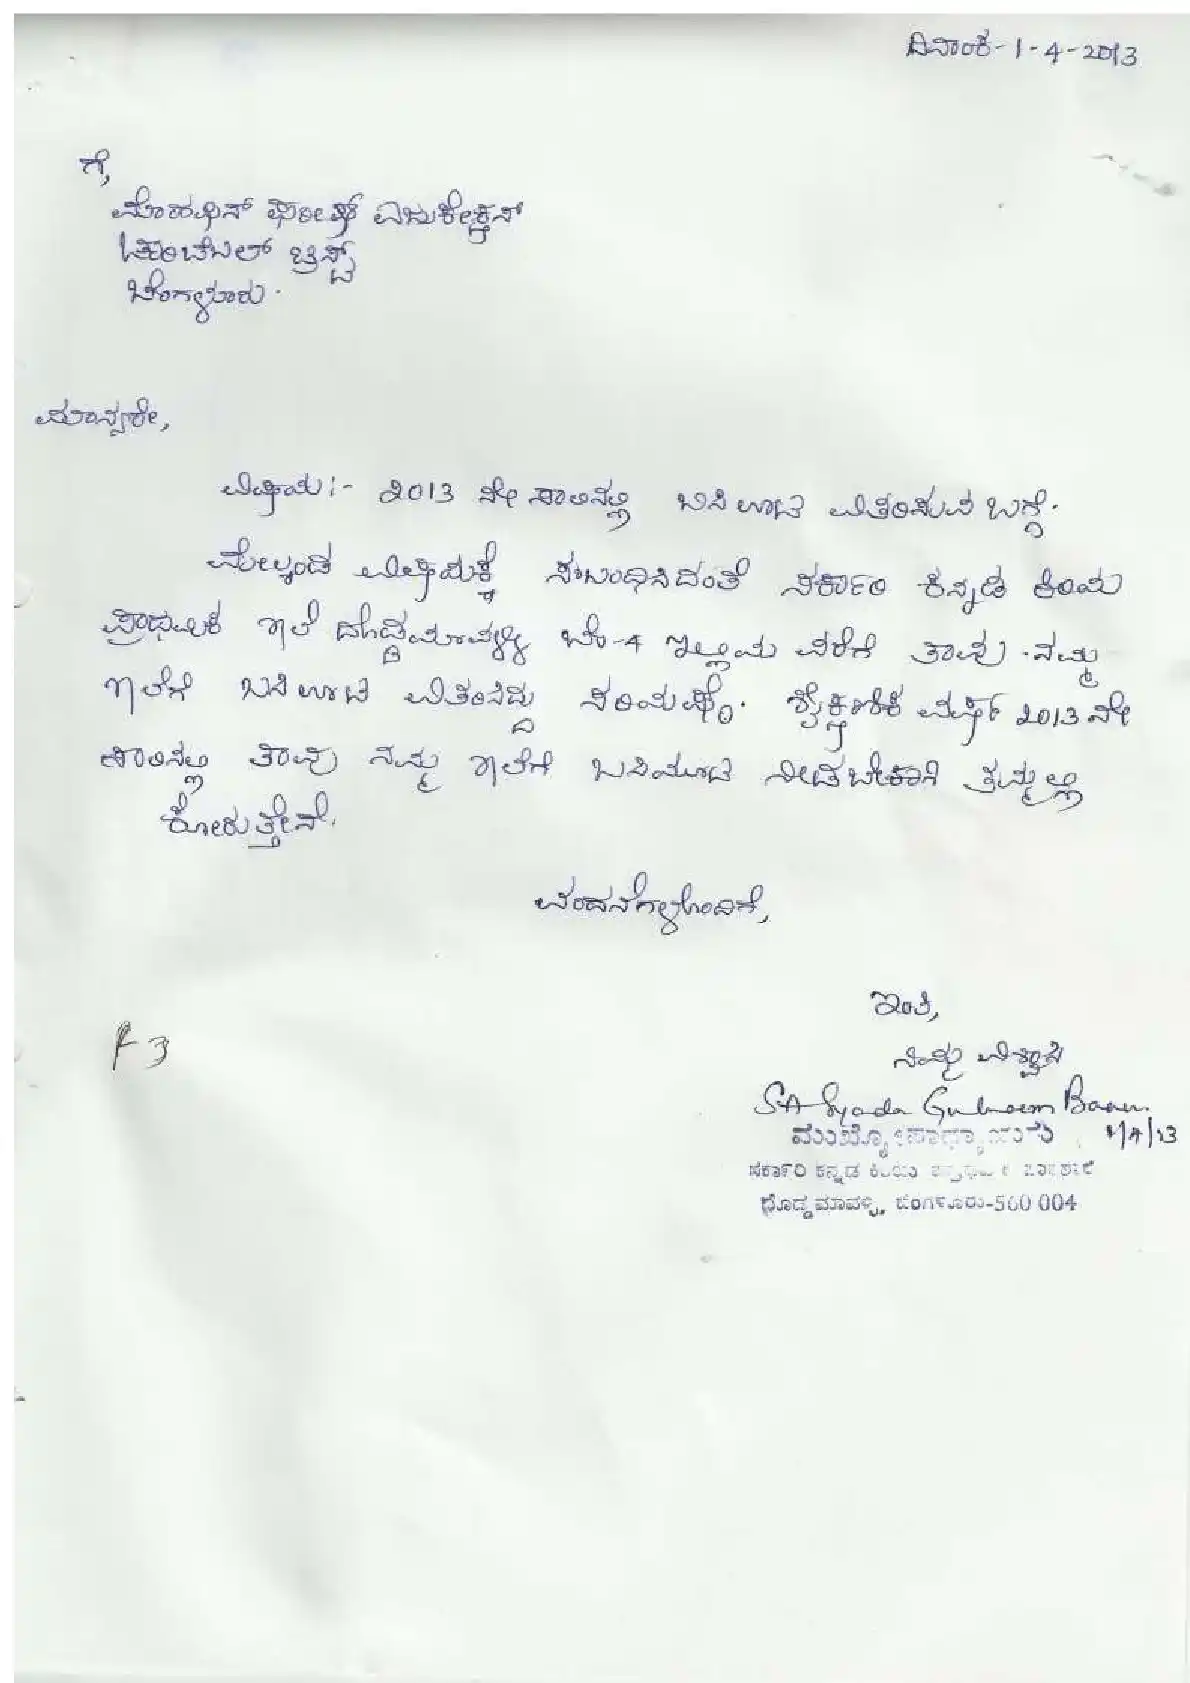 ದಿನಾಂಕ-1-4-2013
ಗೆ,
ಮೊಹಸಿನ್ ಷರೀಫ್ ಎಜುಕೇಶ್ನನ್
ಚಾರಿಟೆಬಲ್ ಟ್ರಸ್ಟ್
ಬೆಂಗಳೂರು.
ಮಾನ್ಯರೇ,
ವಿಷಯ:- 2013 ನೇ ಸಾಲಿನಲ್ಲಿ ಬಿಸಿ ಊಟ ವಿತರಿಸುವ ಬಗ್ಗೆ.
ಮೇಲ್ಕಂಡ ವಿಷಯಕ್ಕೆ ಸಂಬಂಧಿಸಿದಂತೆ ಸರ್ಕಾರಿ ಕನ್ನಡ ಕಿರಿಯ
ಪ್ರಾಥಮಿಕ ಶಾಲೆ ದೊಡ್ಡಮಾವಳ್ಳಿ ಬೆಂ-4 ಇಲ್ಲಿಯ ವರೆಗೆ ತಾವು ನಮ್ಮ
ಶಾಲೆಗೆ ಬಿಸಿ ಊಟ ವಿತರಿಸಿದ್ದು ಸರಿಯಷ್ಟೆ. ಶೈಕ್ಷಣಿಕ ವರ್ಷ 2013 ನೇ
ಸಾಲಿನಲ್ಲಿ ತಾವು ನಮ್ಮ ಶಾಲೆಗೆ ಬಿಸಿಯೂಟ ನೀಡಬೇಕಾಗಿ ತಮ್ಮಲ್ಲಿ
ಕೋರುತ್ತೇನೆ.
ವಂದನೆಗಳೊಂದಿಗೆ,
ಇಂತಿ,
ನಿಮ್ಮ ವಿಶ್ವಾಸಿ
Syada Gulnoem Banu.
ಮುಖ್ಯೋಪಾಧ್ಯಾಯರು 1/4/13
ಸರ್ಕಾರಿ ಕನ್ನಡ ಕಿರಿಯ
ದೊಡ್ಡಮಾವಳ್ಳಿ, ಬೆಂಗಳೂರು-560 004